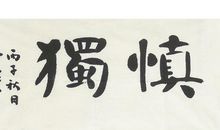 慎獨
丙子秋月